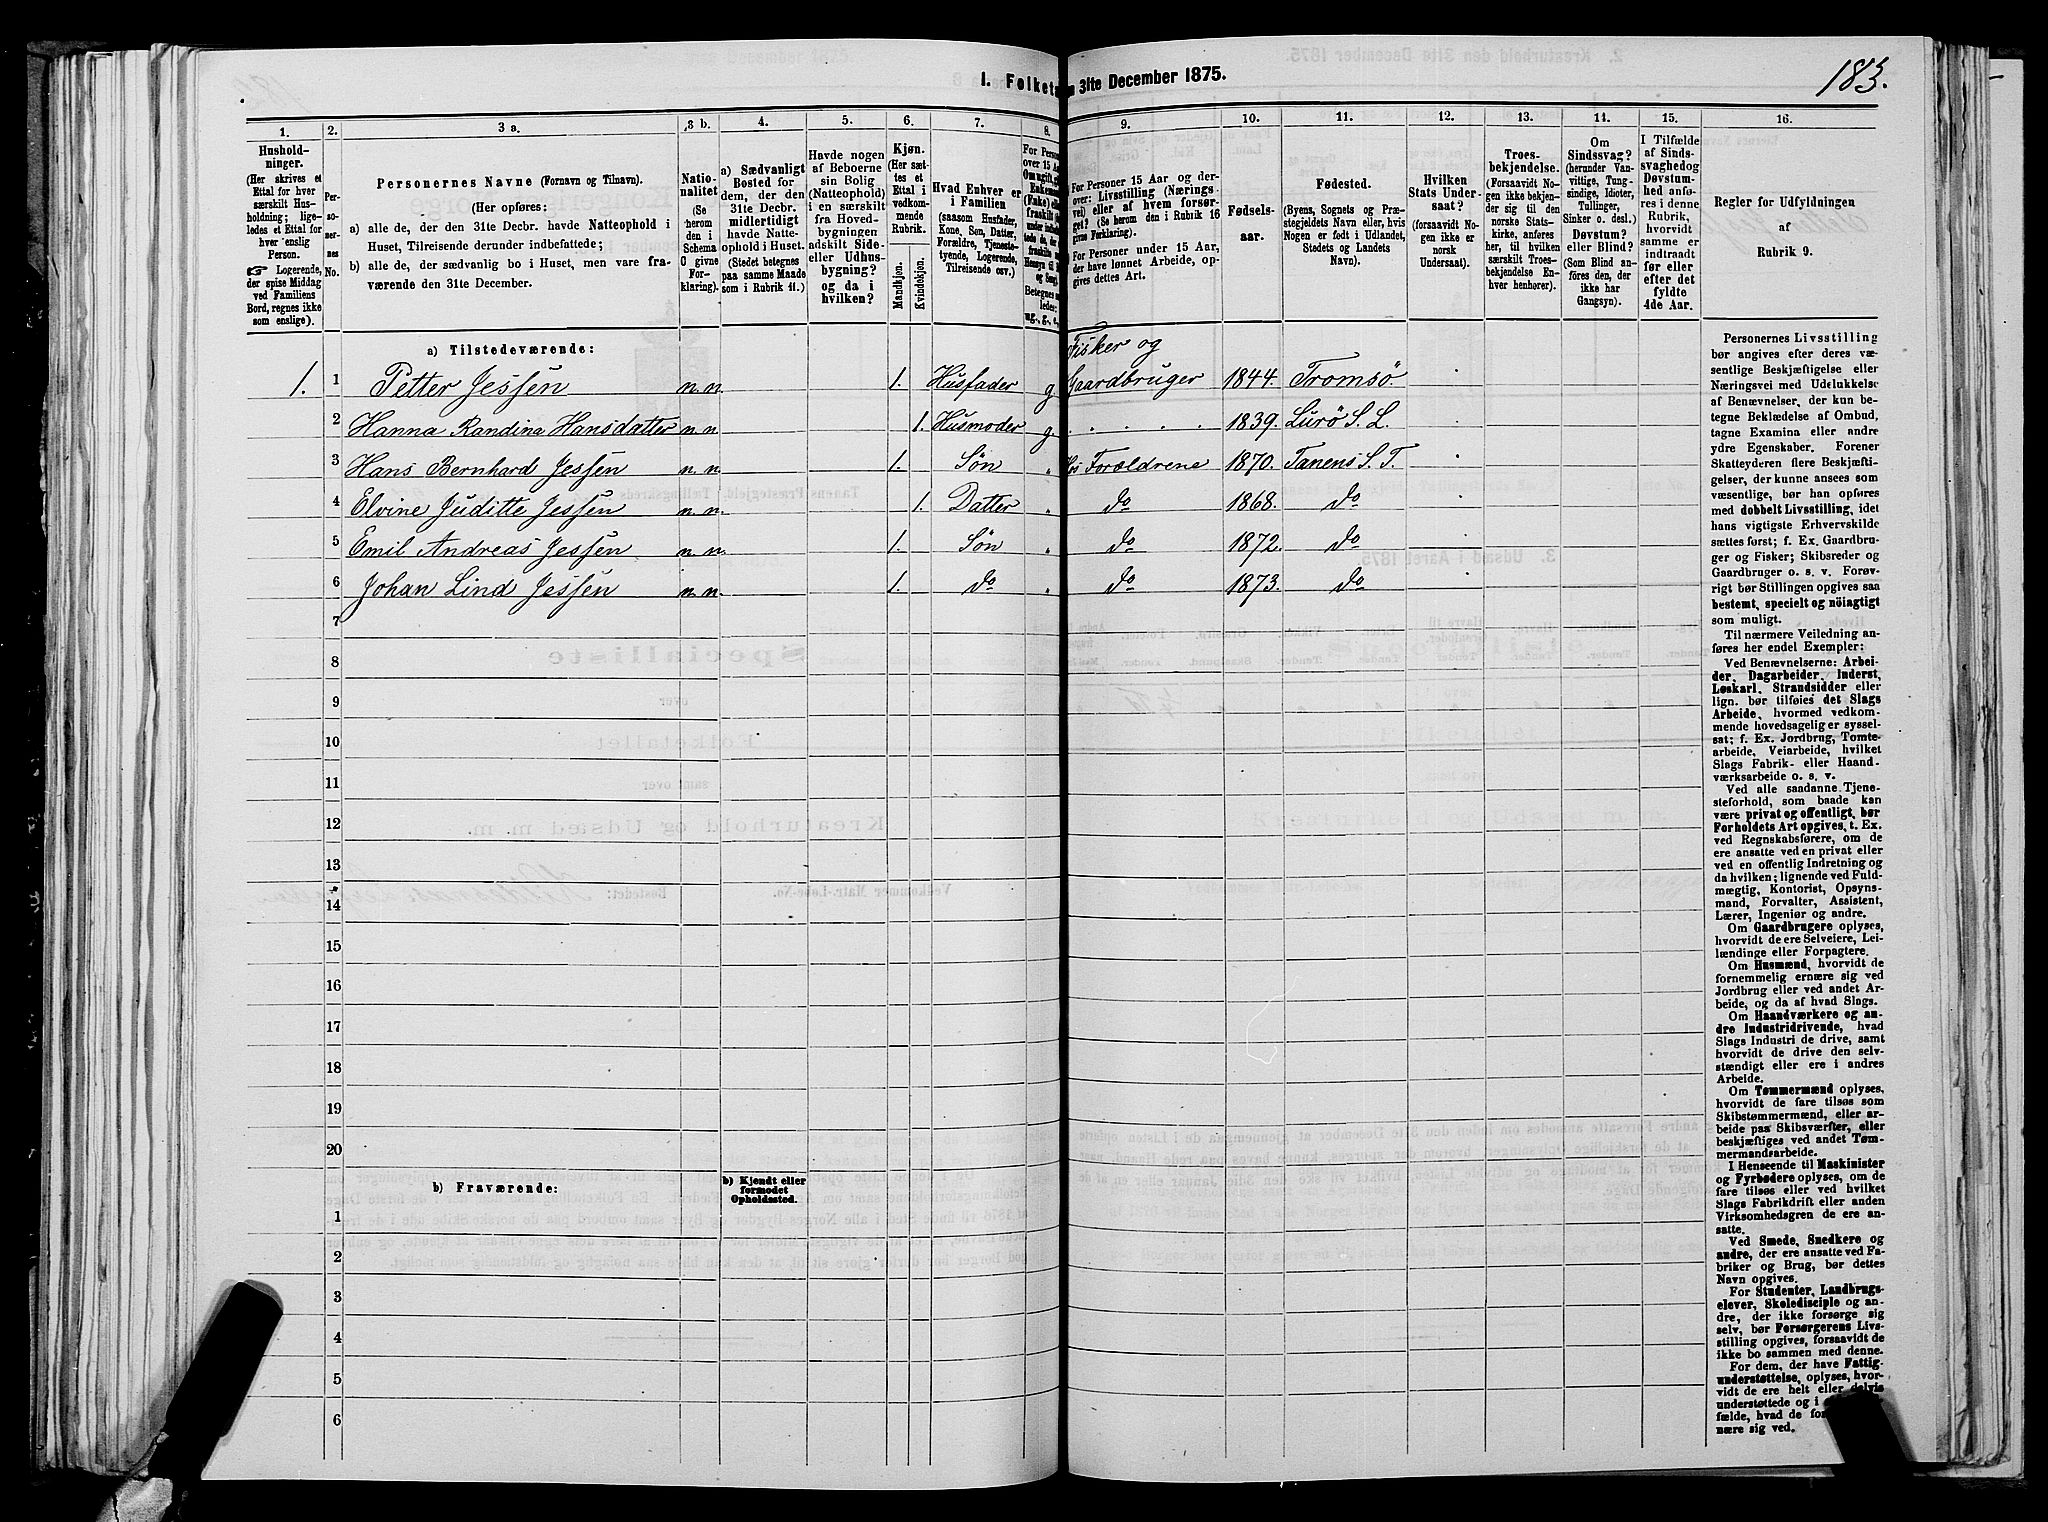 I. Folketa
n 31te December 1875.
183.
1. 2. 3 a. 3 b. 4. 5. 6. 7. 8. 9. 10. 11. 12. 13. 14. 15. 16.
Hushold-
ninger.
(Her skrives et
Ettal for hver
særskilt Hus-
holdning; lige-
ledes et Ettal for
hver enslig
Person.
☞ Logerende,
der spise Middag
ved Familiens
Bord, regnes ikke
som enslige).
Per-
so-
ner-
nes
No.
Personernes Navne (Fornavn og Tilnavn).
(Her opføres:
a) alle de, der den 31te Decbr. havde Natteophold i
Huset, Tilreisende derunder indbefattede;
b) alle de, der sædvanlig bo i Huset, men vare fra-
værende den 31te December.
Natio-
nalitet
(Se
herom
den i
Schema
O givne
For-
klaring).
a) Sædvanligt
Bosted for
dem, der den
31te Decbr.
midlertidigt
havde Natte-
ophold i Huset.
(Stedet betegnes
paa samme Maade
som i Rubrik 11.)
Havde nogen
af Beboerne
sin Bolig
(Natteophold)
i en særskilt
fra Hoved-
bygningen
adskilt Side-
eller Udhus-
bygning?
og da i
hvilken?
Kjøn.
(Her sæt-
tes et
Ettal i
vedkom-
mende
Rubrik.
Mandkjøn.
Kvindekjøn.
Hvad Enhver er
i Familien
(saasom Husfader,
Kone, Søn, Datter,
Forældre, Tjeneste-
tyende, Logerende,
Tilreisende osv.)
For Personer 15 Aar og der-
over: Livsstilling (Nærings-
vei) eller af hvem forsør-
get? (Se herom den i Rubrik 16
givne Forklaring).
For Personer under 15 Aar,
der have lønnet Arbeide, op-
gives dettes Art.
Fødsels-
aar.
Fødested.
(Byens, Sognets og Præ-
stegjeldets Navn eller, hvis
Nogen er født i Udlandet,
Stedets og Landets
Navn).
Hvilken
Stats Under-
saat?
(forsaavidt No-
gen ikke er
norsk
Undersaat).
Troes-
bekjendelse.
(Forsaavidt No-
gen ikke bekjen-
der sig til den
norske Stats-
kirke, anføres
her, til hvilken
særskilt Troes-
bekjendelse En-
hver henhører).
Om
Sindssvag?
(herunder Van-
vittige, Tung-
sindige, Idioter,
Tullinger,
Sinker o. desl.)
Døvstum?
eller Blind?
(Som Blind an-
føres den, der
ikke har
Gangsyn).
I Tilfælde
af Sinds-
svaghed og
Døvstum-
hed anfø-
res i denne
Rubrik,
hvorvidt
samme er
indtraadt
før eller
efter det
fyldte
4de Aar.
Regler for Udfyldningen
af
Rubrik 9.
a) Tilstedeværende:
Fisker og
1. 1 Petter Jessen n.n. 1. Husfader g Gaardbruger 1844. Tromsö.
2 Hanna Randina Hansdatter n.n. 1. Husmoder g. 1839. Lurö S. L.
3 Hans Bernhard Jessen n.n. 1. Søn Forældrene 1870. Tanens S. T.
4 Elvine Juditte Jessen n.n. 1. Datter do 1868. do
5 Emil Andreas Jessen n.n. 1. Søn do 1872. do
6 Johan Lind Jessen n.n. 1. do do 1873. do
7
8
9
10
11
12
13
14
15
16
17
18
19
20
b) Fraværende:
b) Kjendt eller
formodet
Opholdssted.
1
2
3
4
5
6
Personernes Livsstilling
bør angives efter deres væ-
sentlige Beskjæftigelse eller
Næringsvei med Udelukkelse
af Benævnelser, der kun be-
tegne Beklædelse af Ombud,
tagne Examina eller andre
ydre Egenskaber. Forener
Skatteyderen flere Beskjæfti-
gelser, der kunne ansees som
væsentlige, bør han opføres
med dobbelt Livsstilling, idet
hans vigtigste Erhvervskilde
sættes først; f. Ex. Gaardbru-
ger og Fisker; Skibsreder og
Gaardbruger o. s. v. Forøv-
rigt bør Stillingen opgives saa
bestemt, specielt og nöiagtigt
som muligt.
Til nærmere Veiledning an-
føres her endel Exempler:
Ved Benævnelserne: Arbei-
der, Dagarbeider, Inderst,
Løskarl, Strandsidder eller
lign. bør tilføies det Slags
Arbeide, hvormed vedkom-
mende hovedsagelig er syssel-
sat; f. Ex. Jordbrug, Tomte-
arbeide, Veiarbeide, hvilket
Slags Fabrik- eller Haand-
værksarbeide o. s. v.
Ved alle saadanne Tjene-
steforhold, som baade kan
være privat og offentligt, bør
Forholdets Art opgives, t. Ex.
ved Regnskabsførere, om de
ere ansatte ved en privat eller
ved en offentlig Indretning og
da hvilken; lignende ved Fuld-
mægtig, Kontorist, Opsyns-
mand, Forvalter, Assistent,
Lærer, Ingeniør og andre.
Om Gaardbrugere oplyses,
hvorvidt de ere Selveiere, Lei-
lændinge eller Forpagtere.
Om Husmænd, hvorvidt de
fornemmelig ernære sig ved
Jordbrug eller ved andet Ar-
beide, og da af hvad Slags.
Om Haandværkere og an-
dre Industridrivende, hvad
Slags Industri de drive, samt
hvorvidt de drive den selv-
stændigt eller ere i andres
Arbeide.
Om Tømmermænd oplyses,
hvorvidt de fare tilsøs som
Skibstømmermænd, eller ar-
beide paa Skibsværfter, eller
beskjæftiges ved andet Tøm-
mermandsarbeide.
I Henseende til Maskinister
og Fyrbødere oplyses, om de
fare tilsøs eller ved hvilket
Slags Fabrikdrift eller anden
Virksomhedsgren de ere an-
satte.
Ved Smede, Snedkere og
andre, der ere ansatte ved Fa-
briker og Brug, bør dettes
Navn opgives.
For Studenter, Landbrugs-
elever, Skoledisciple og an-
dre, der ikke forsørge sig
selv, bør Forsørgerens Livs-
stilling opgives, forsaavidt de
ikke bo sammen med denne.
For dem, der have Fattig-
understøttelse, oplyses, hvor-
vidt de ere helt eller delvis
understøttede og i
fælde, hvad de
nære sig ved.